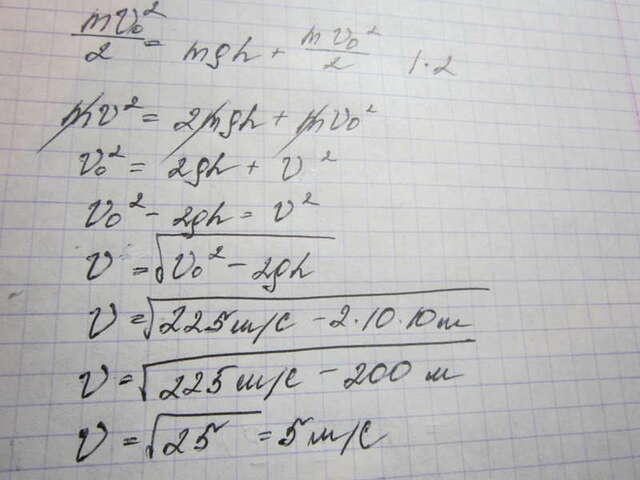 mv₀²/2 = mgh + mv₀²/2 |·2
mv² = 2mgh + mv₀²
v₀² = 2gh + v²
v₀² - 2gh = v²
v = √(v₀² - 2gh)
v = √(225 м/с - 2·10·10 м)
v = √(225 м/с - 200 м)
v = √25 = 5 м/с